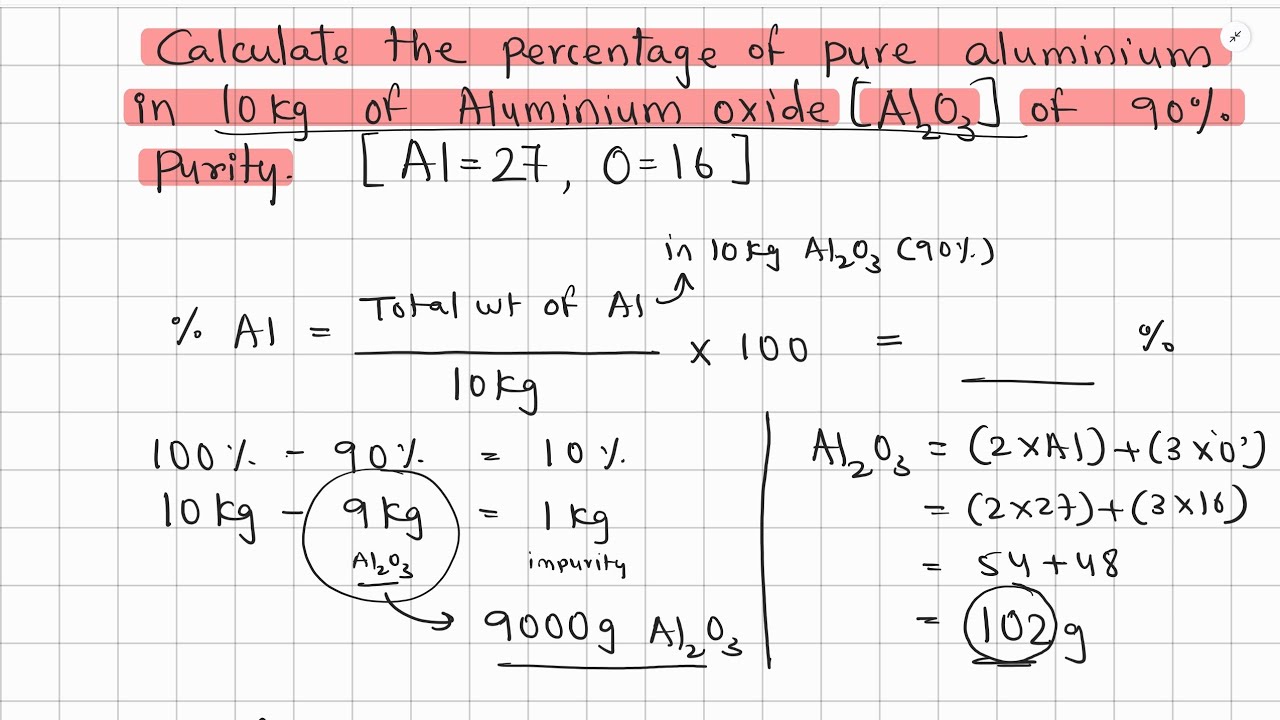 Calculate the percentage of pure aluminium
in 10kg of Aluminium oxide [Al₂O₃] of 90%.
Purity. [Al=27, O=16]
in 10kg Al₂O₃ (90%)
% Al = Total wt of Al / 10kg × 100 = ____ %
100% - 90% = 10%
10kg - 9kg = 1kg
Al₂O₃ impurity
9000g Al₂O₃
Al₂O₃ = (2×Al)+(3×O)
= (2×27)+(3×16)
= 54+48
= 102g